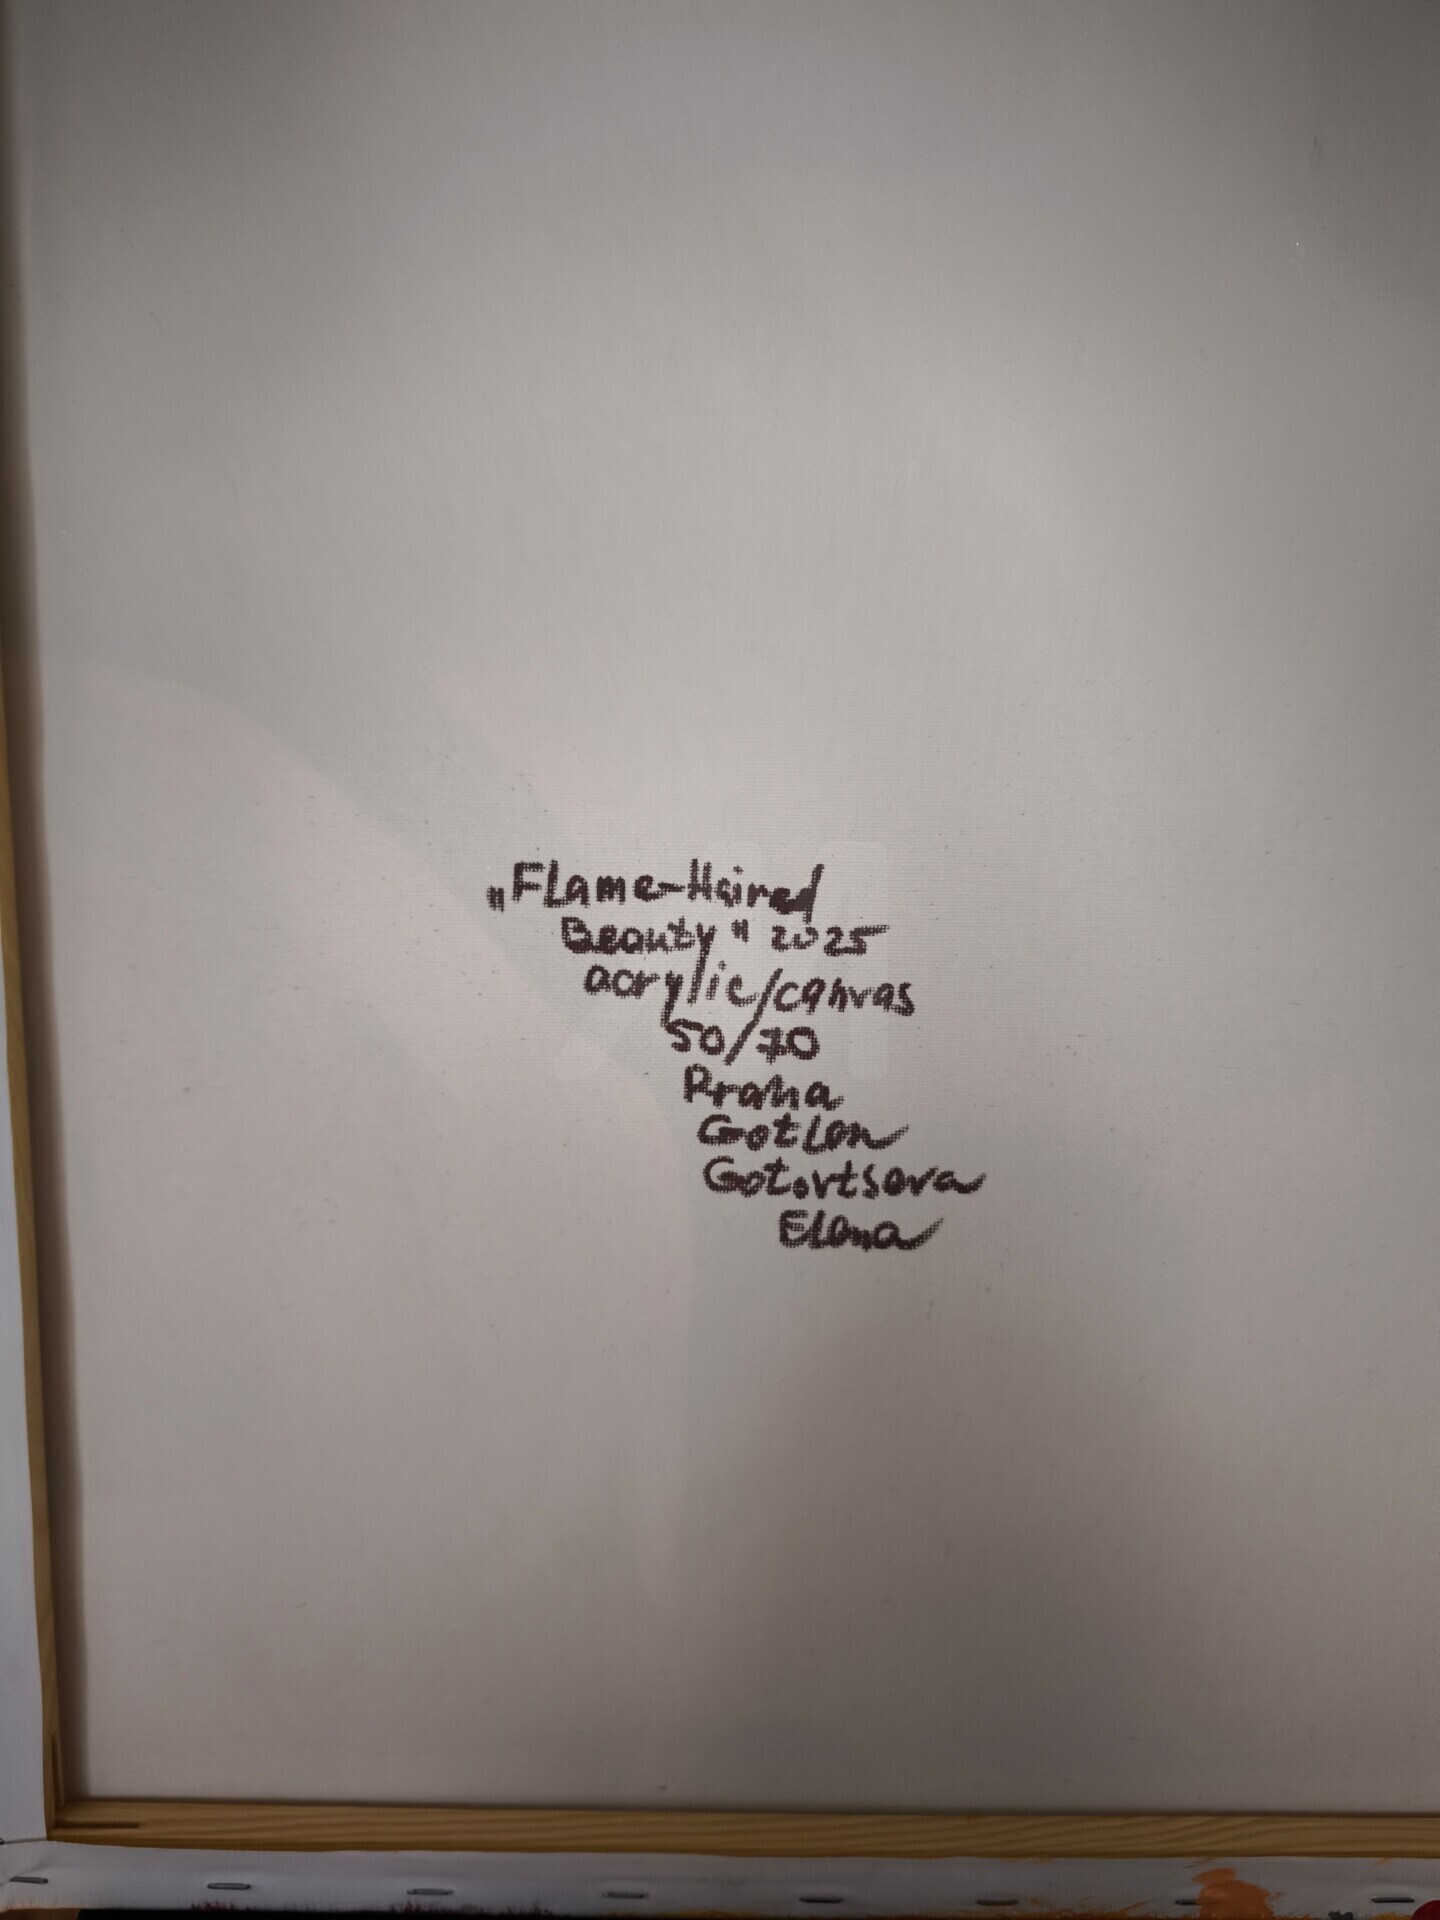 „Flame-Haired
Beauty" 2025
acrylic/canvas
50/70
Praha
Gotlen
Gotovtseva
Elena